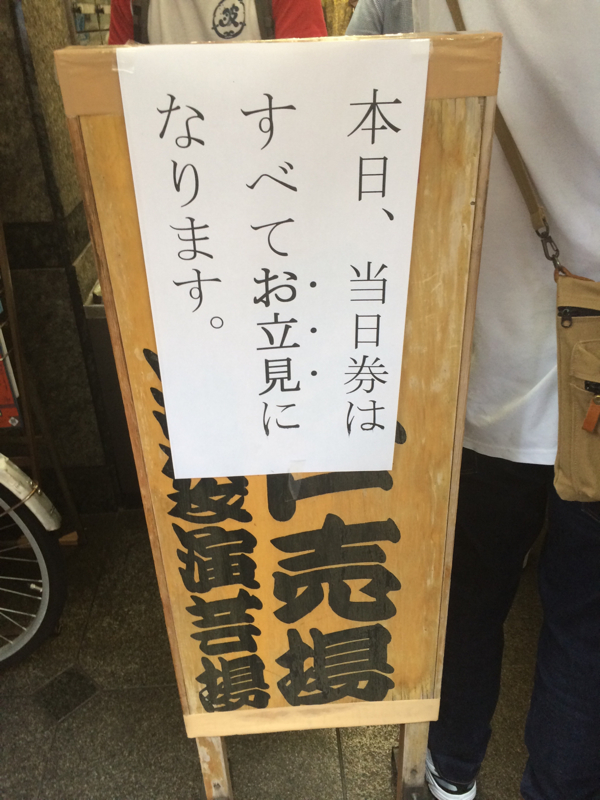 本日、当日券は
すべてお立見に
なります。
売場
演芸場